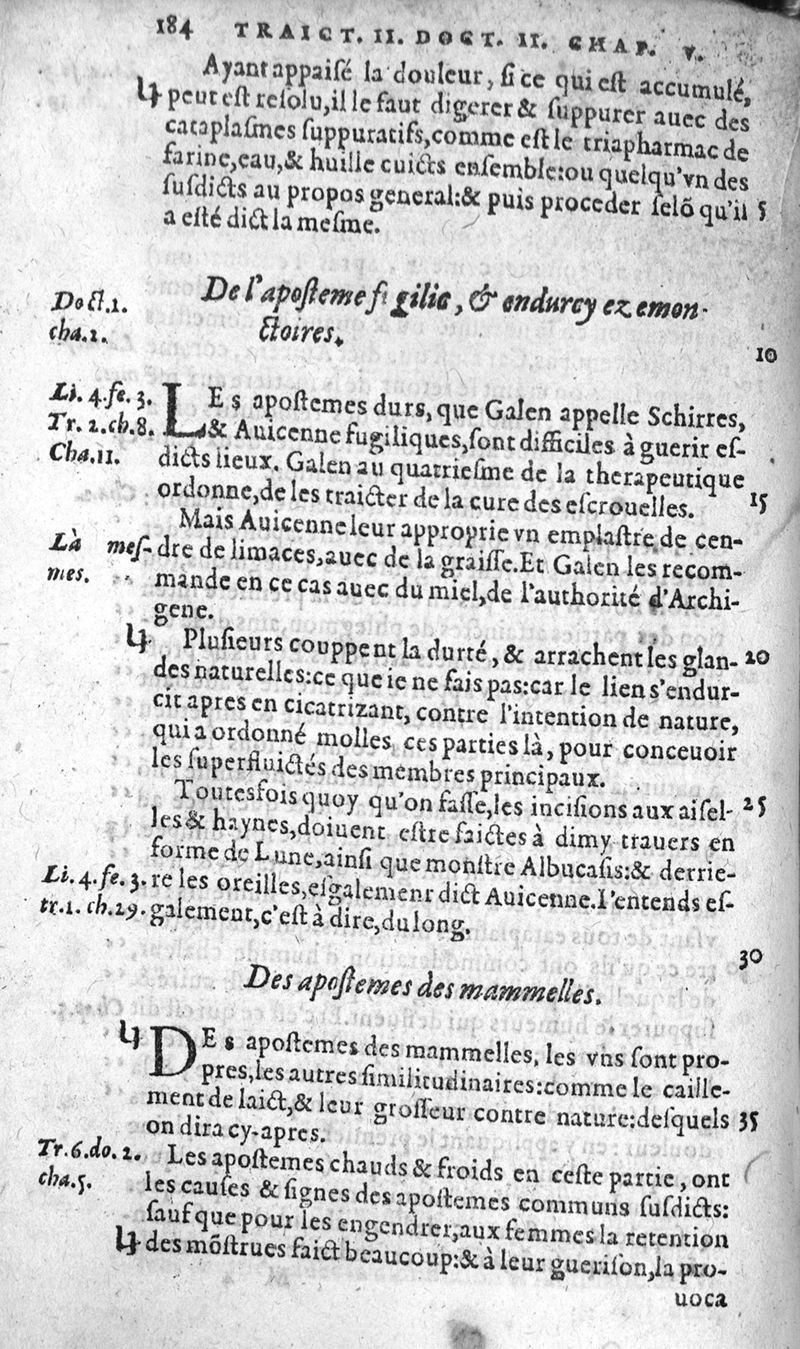 184 TRAICT. II. DOCT. II. CHAP. V.
Ayant appaisé la douleur, si ce qui est accumulé,
peut est resolu, il le faut digerer & suppurer auec des
cataplasmes suppuratifs, comme est le triapharmac de
farine, eau, & huille cuicts ensemble: ou quelqu'vn des
susdicts au propos general: & puis proceder selõ qu'il 5
a esté dict la mesme.
Doct.1. De l'aposteme fi gilic, & endurcy ez emon-
cha.2. ctoires.
10
Li. 4. fe. 3. LEs apostemes durs, que Galen appelle Schirres,
Tr. 2. ch. 8. & Auicenne fugiliques, sont difficiles à guerir es-
Cha.11. dicts lieux. Galen au quatriesme de la therapeutique
ordonne, de les traicter de la cure des escrouelles. 15
Mais Auicenne leur approprie vn emplastre de cen-
Là mes- dre de limaces, auec de la graisse. Et Galen les recom-
mes. mande en ce cas auec du miel, de l'authorité d'Archi-
gene.
Plusieurs couppent la durté, & arrachent les glan- 20
des naturelles: ce que ie ne fais pas: car le lien s'endur-
cit apres en cicatrizant, contre l'intention de nature,
qui a ordonné molles ces parties là, pour conceuoir
les superfluictés des membres principaux.
Toutesfois quoy qu'on fasse, les incisions aux aisel- 25
les & haynes, doiuent estre faictes à dimy trauers en
forme de Lune, ainsi que monstre Albucasis: & derrie-
Li. 4. fe. 3. re les oreilles, esgalement dict Auicenne. I'entends es-
tr.1. ch.29. galement, c'est à dire, du long.
30
Des apostemes des mammelles.
DEs apostemes des mammelles, les vns sont pro-
pres, les autres similitudinaires: comme le caille-
ment de laict, & leur grosseur contre nature: desquels 35
on dira cy-apres.
Tr.6.do.2. Les apostemes chauds & froids en ceste partie, ont
cha.5. les causes & signes des apostemes communs susdicts:
sauf que pour les engendrer, aux femmes la retention
des mõstrues faict beaucoup: & à leur guerison, la pro-
uoca